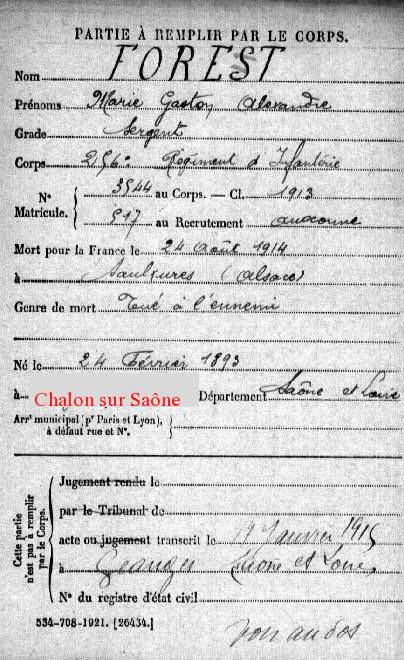 PARTIE À REMPLIR PAR LE CORPS.
Nom FOREST
Prénoms Marie Gaston Alexandre
Grade Sergent
Corps 256e Régiment d'Infanterie
N° Matricule.
3544 au Corps. — Cl. 1913
517 au Recrutement Auxonne
Mort pour la France le 24 Août 1914
à Saulxures (Alsace)
Genre de mort Tué à l'ennemi
Né le 24 Février 1893
à Chalon sur Saône Département Saône et Loire
Arrt municipal (pr Paris et Lyon),
à défaut rue et N°.
Cette partie n'est pas à remplir par le Corps.
Jugement rendu le
par le Tribunal de
acte ou jugement transcrit le 19 Janvier 1915
à Granges Saône et Loire
N° du registre d'état civil
534-708-1921. [26434.]